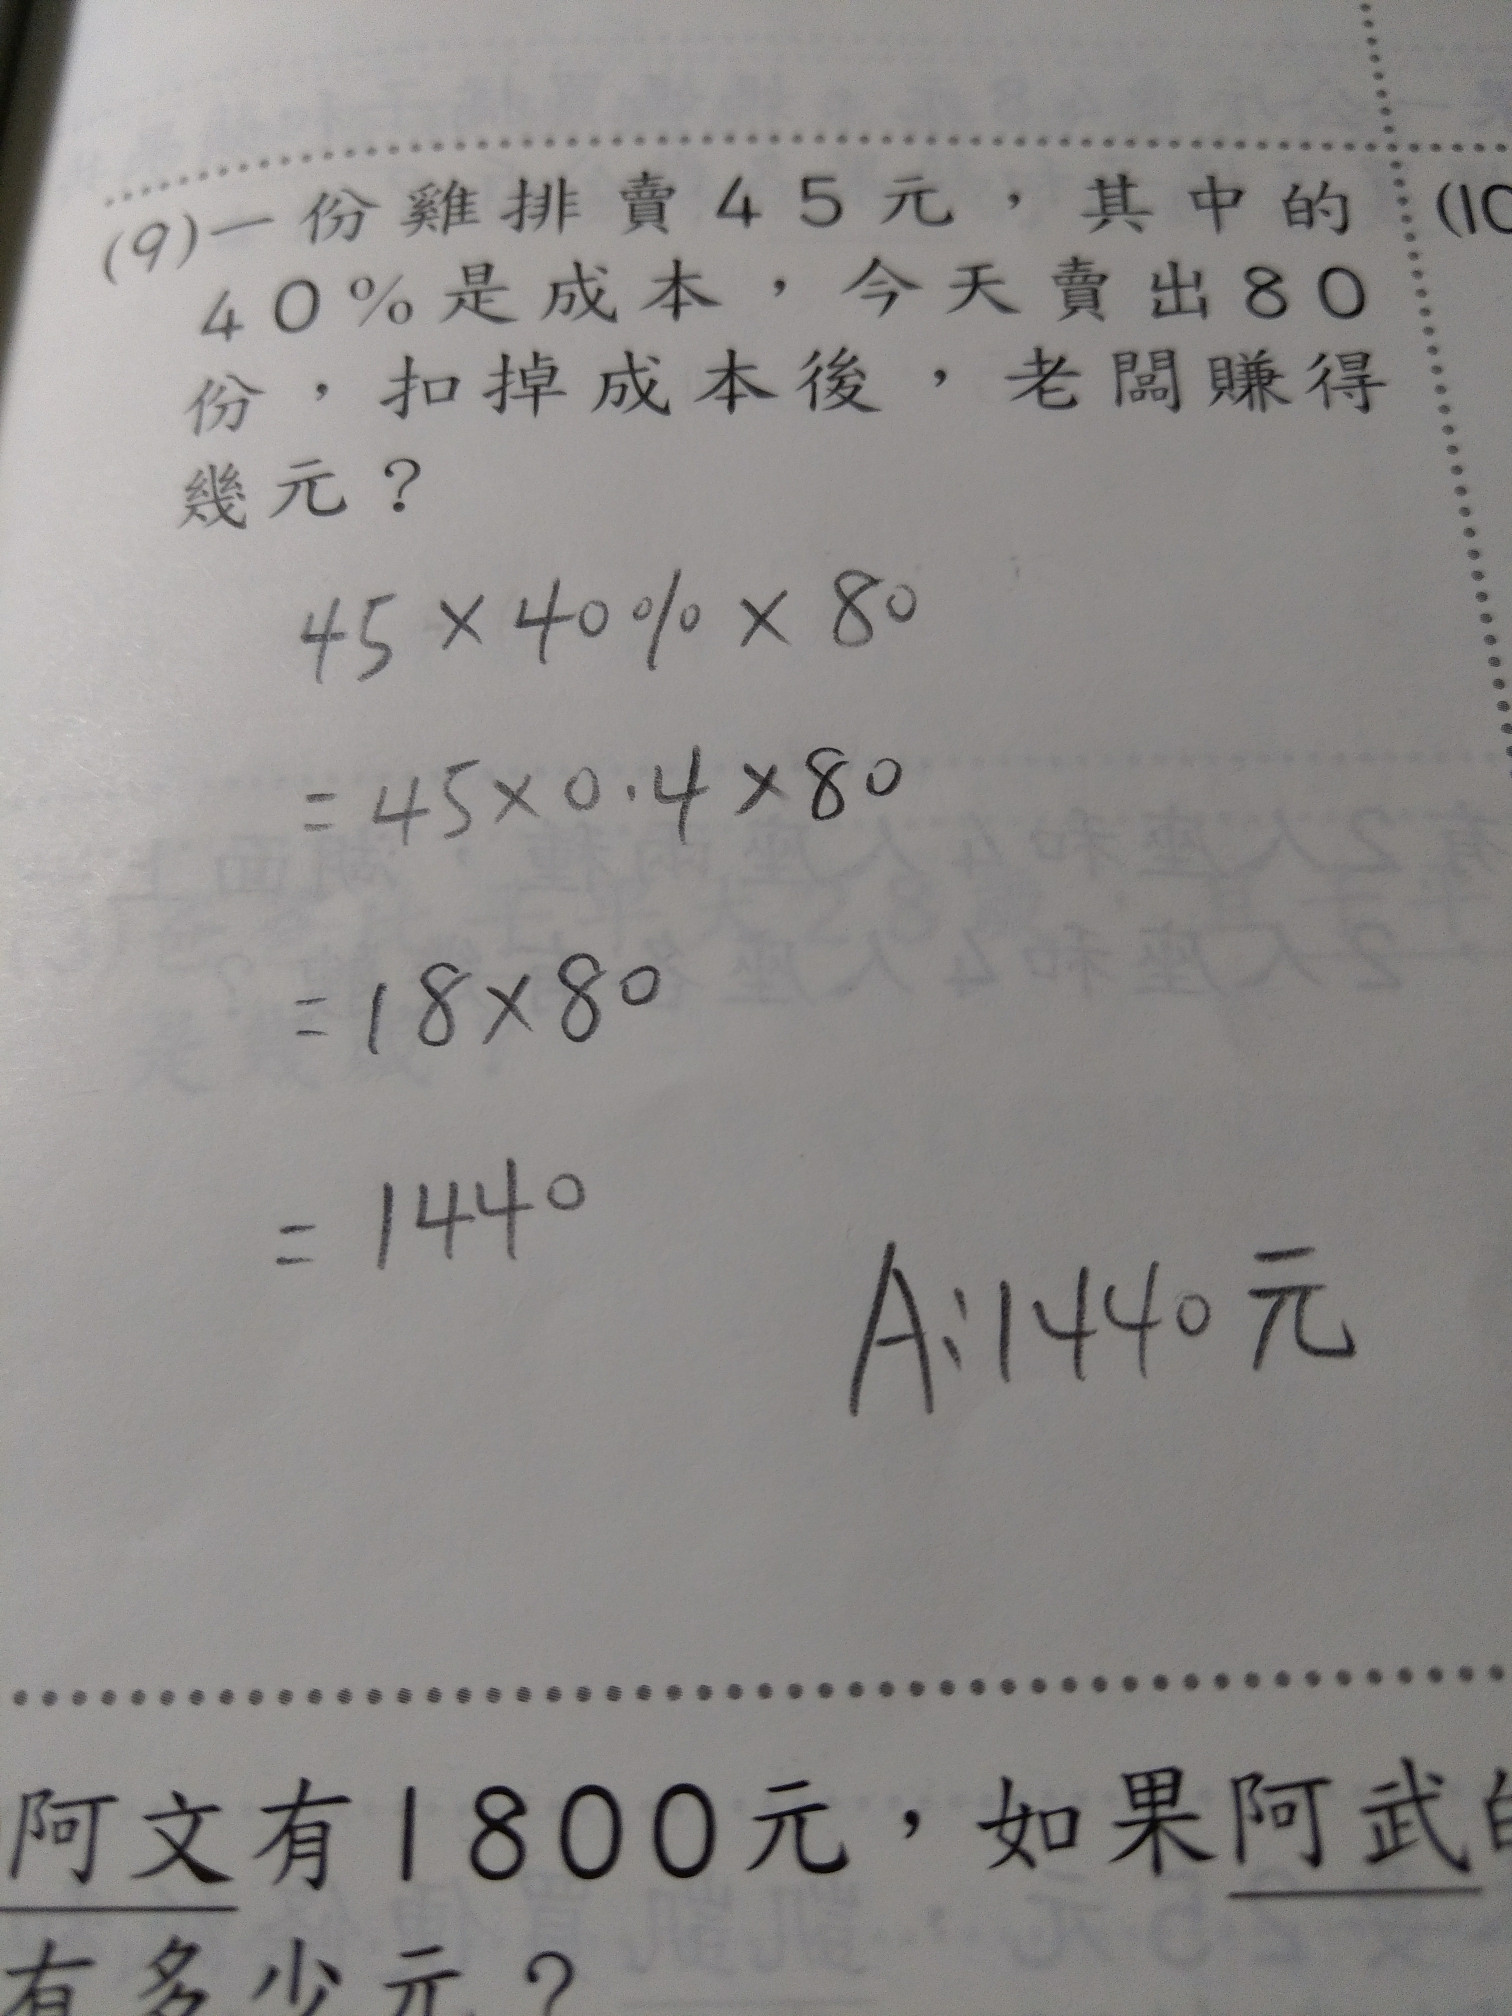 (9)一份雞排賣45元，其中的
40%是成本，今天賣出80
份，扣掉成本後，老闆賺得
幾元？
45×40%×80
=45×0.4×80
=18×80
=1440
A:1440元
(10
阿文有1800元，如果阿武的
有多少元？